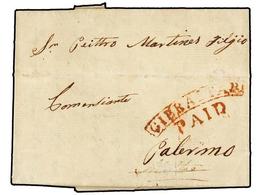 Sr Peittro Martines Felgio
Comerciante
GIBRALTAR
PAID
Palermo